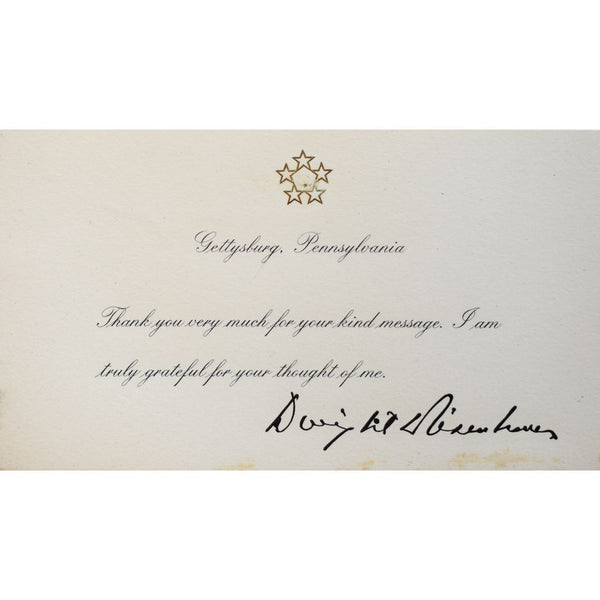 Gettysburg, Pennsylvania
Thank you very much for your kind message. I am
truly grateful for your thought of me.
Dwight D Eisenhower